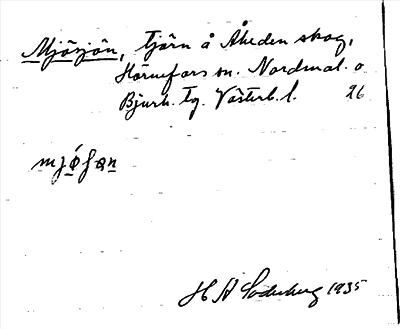 Mjösjön, tjärn å Åheden skog,
Hörnefors sn. Nordmal. o
Bjurh. tg. Västerb. l. 26
mjø̀ʃan
H A Söderberg 1935